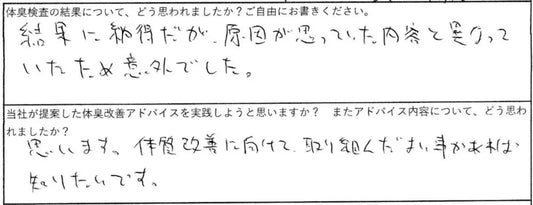 体臭検査の結果について、どう思われましたか？ご自由にお書きください。
結果に納得だが、原因が思っていた内容と異なって
いたため意外でした。
当社が提案した体臭改善アドバイスを実践しようと思いますか？　またアドバイス内容について、どう思わ
れましたか？
思います。体質改善に向けて、取り組んだよい事があれば
知りたいです。